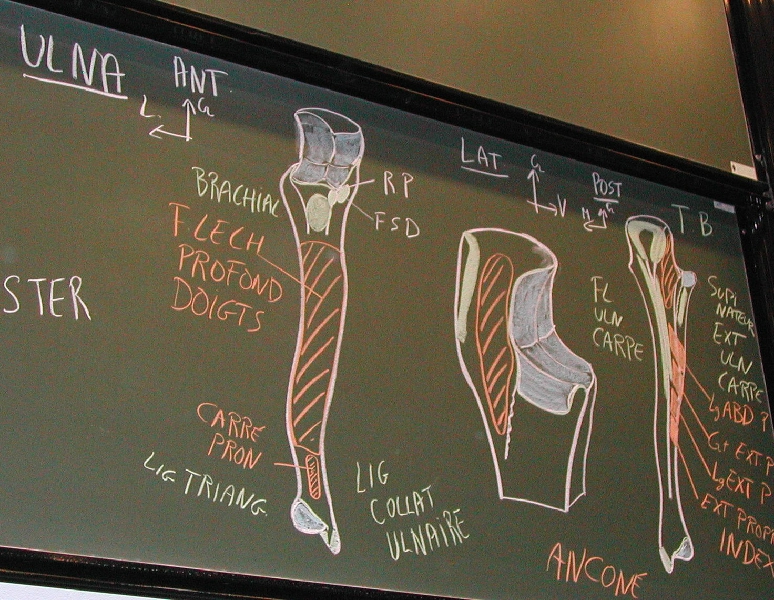 ULNA
ANT.
L
BRACHIAL
RP
FSD
FLECH
PROFOND
DOIGTS
STER
CARRE
PRON
LIG TRIANG.
LIG
COLLAT
ULNAIRE
LAT
V
ANCONE
POST
TB
FL
ULN
CARPE
SUPI
NATEUR
EXT
ULN
CARPE
Lg ABD P
Ct EXT P
Lg EXT P
EXT PROP
INDEX